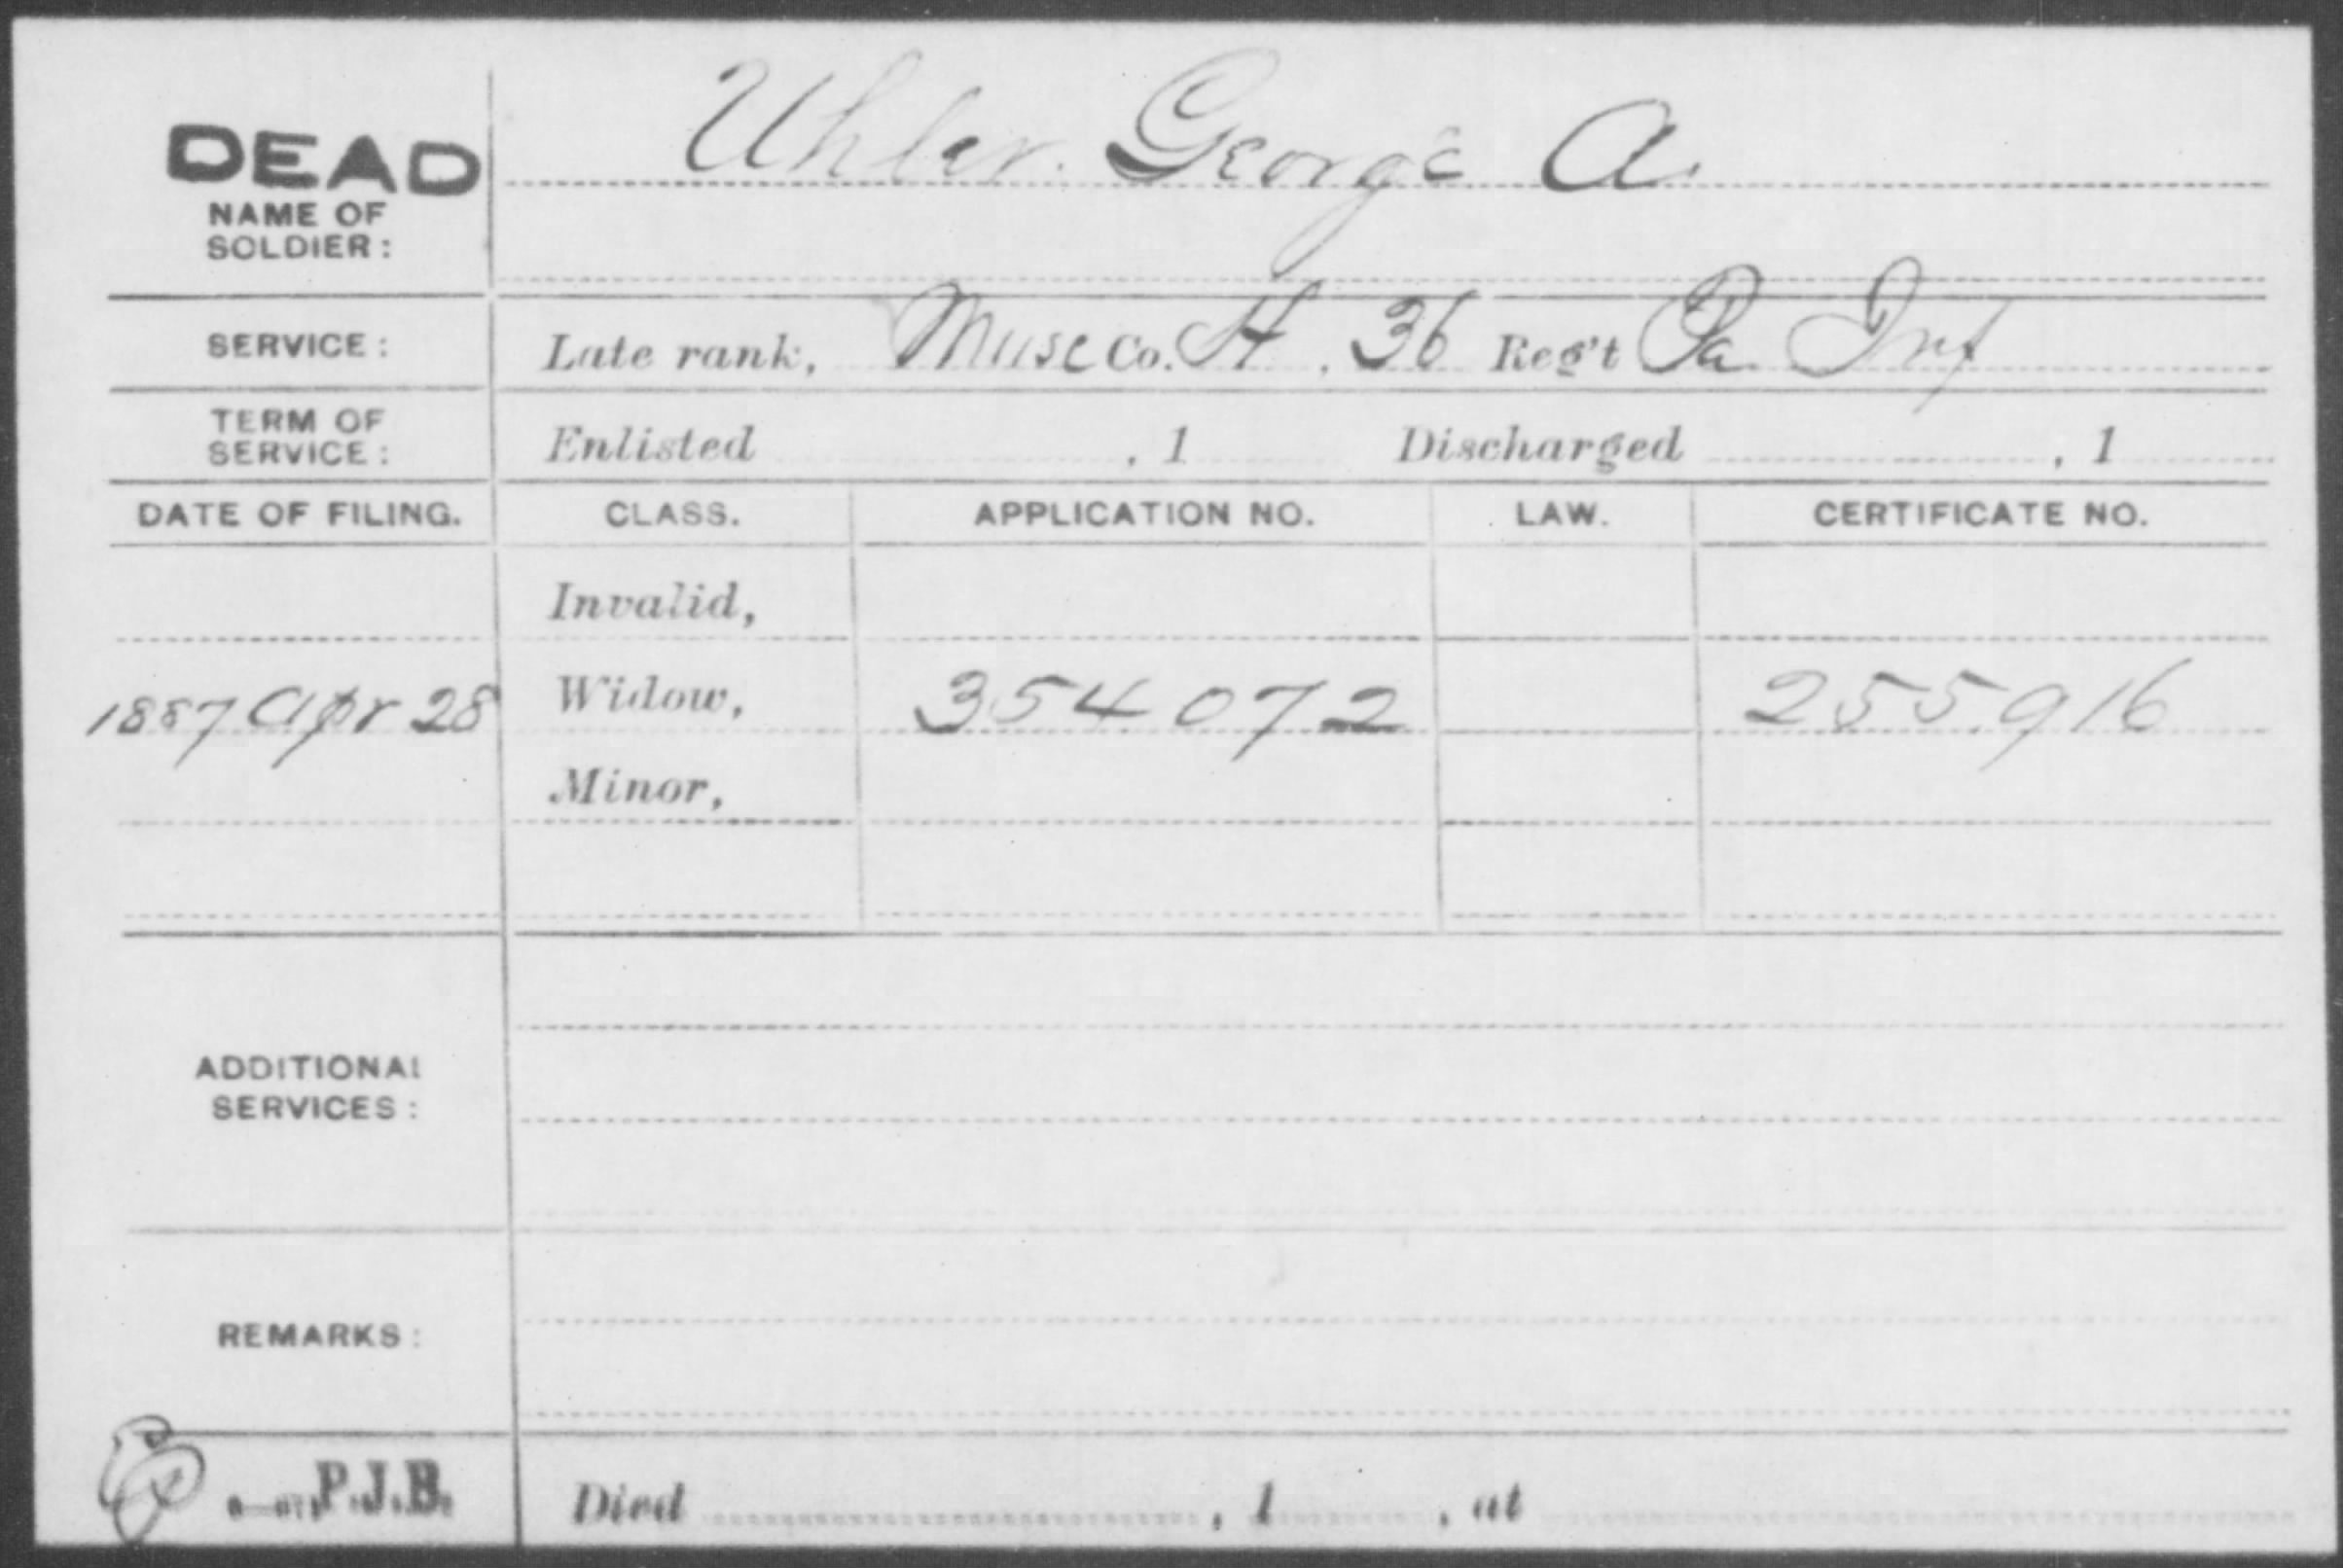 DEAD
NAME OF
SOLDIER:
Uhler. George A.
SERVICE:
Late rank, Musc Co. H, 36 Reg't Pa Inf
TERM OF
SERVICE:
Enlisted , 1 Discharged , 1
DATE OF FILING. CLASS. APPLICATION NO. LAW. CERTIFICATE NO.
Invalid,
1887 Apr 28 Widow, 354072 255916
Minor,
ADDITIONAL
SERVICES:
REMARKS:
P.J.B.
Died , 1 , at